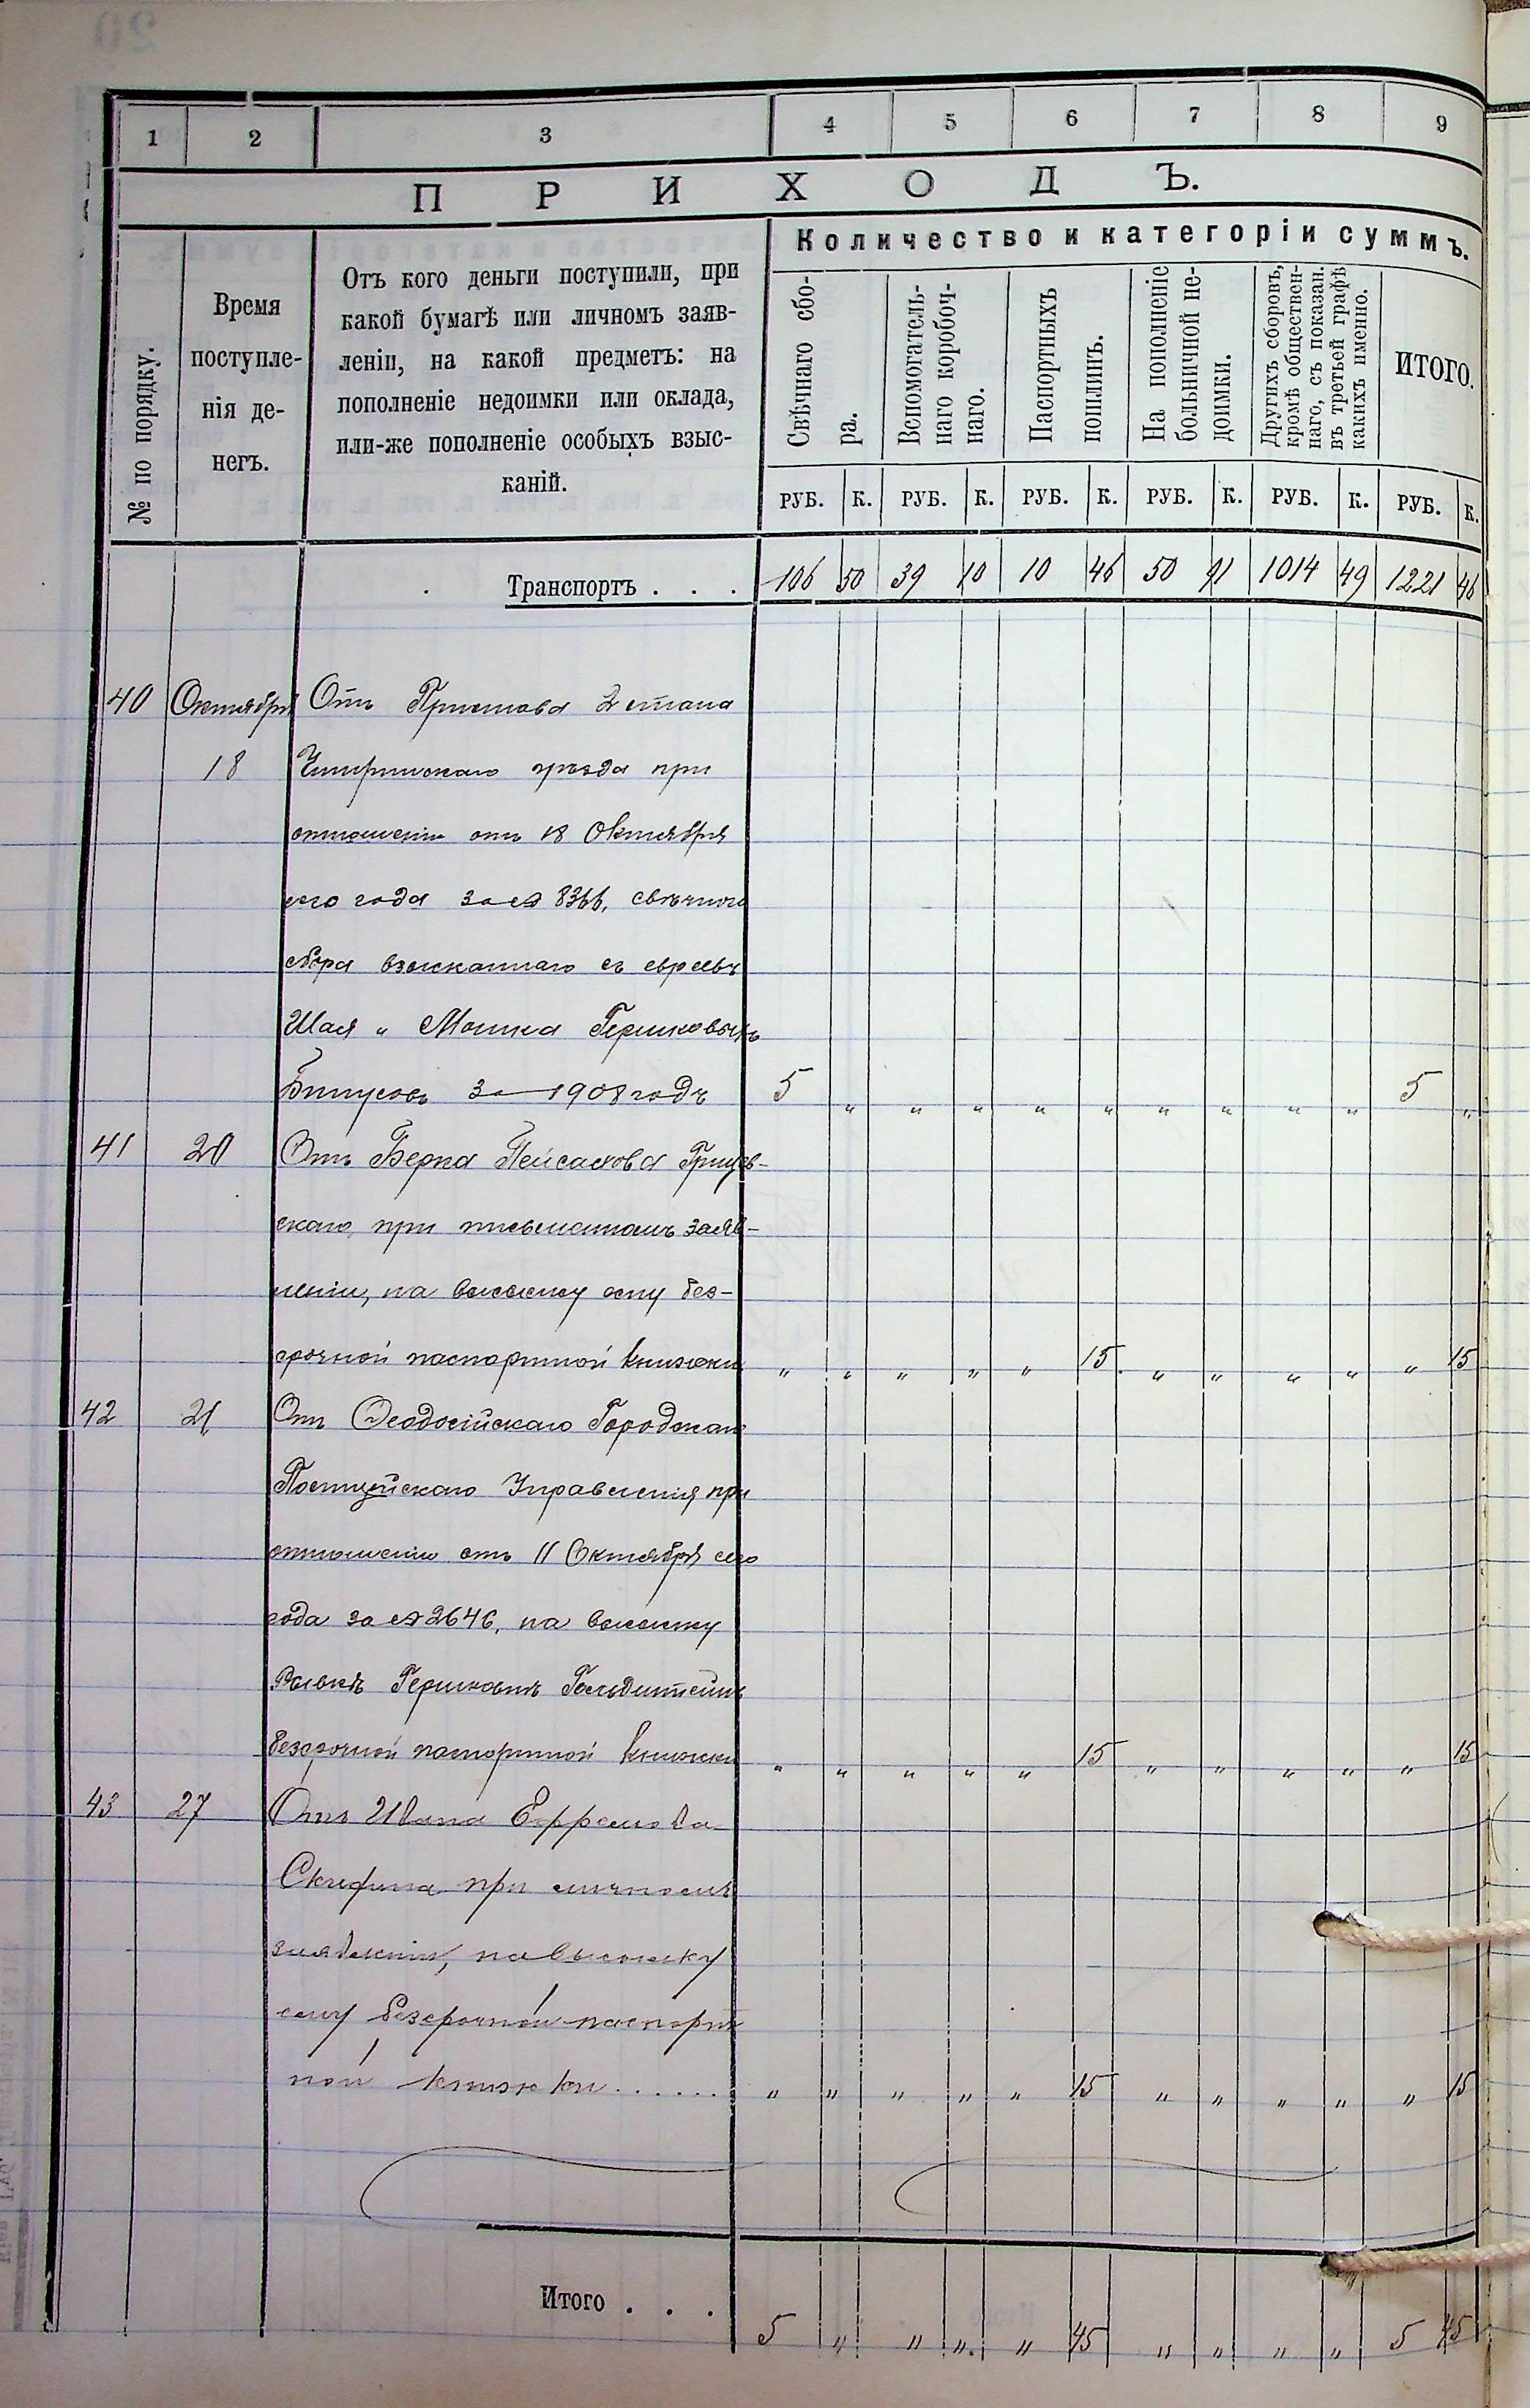 1 2 3 4 5 6 7 8 9
ПРИХОДЪ.
№ по порядку.
Время
поступле-
нія де-
негъ.
Отъ кого деньги поступили, при
какой бумагѣ или личномъ заяв-
леніи, на какой предметъ: на
пополненіе недоимки или оклада,
или-же пополненіе особыхъ взыс-
каній.
Количество и категоріи суммъ.
Свѣчнаго сбо-
ра.
Вспомогатель-
наго коробоч-
наго.
Паспортныхъ
пошлинъ.
На пополненіе
больничной не-
доимки.
Другихъ сборовъ,
кромѣ обществен-
наго, съ показан.
въ третьей графѣ
какихъ именно.
ИТОГО.
РУБ. К. РУБ. К. РУБ. К. РУБ. К. РУБ. К. РУБ. К.
Транспортъ . . . 106 50 39 10 10 46 50 91 1014 49 1221 46
40 Октября Отъ Пристава 2 стана
18 Чигиринскаго уѣзда при
отношеніи отъ 18 Октября
сего года за № 8366, свѣчного
сбора взысканнаго съ евреевъ
Шая и Мошка Гершковыхъ
за 1908 годъ 5 " " " " " " " " " 5 "
41 20 Отъ Берка Пейсахова
скаго, при письменномъ заяв-
леніи, на высылку ему без-
срочной паспортной книжки " " " " " 15 " " " " " 15
42 21 Отъ Ѳеодосійскаго Городскаго
Полицейскаго Управленія при
отношеніи отъ 11 Октября сего
года за № 2646, на высылку
Гершковнѣ Гольдштейнъ
безсрочной паспортной книжки " " " " " 15 " " " " " 15
43 27 Отъ Ивана Ефремова
при личномъ
заявленіи, на высылку
ему безсрочной паспорт
ной книжки...... " " " " " 15 " " " " " 15
Итого . . . 5 " " " " 45 " " " " 5 45